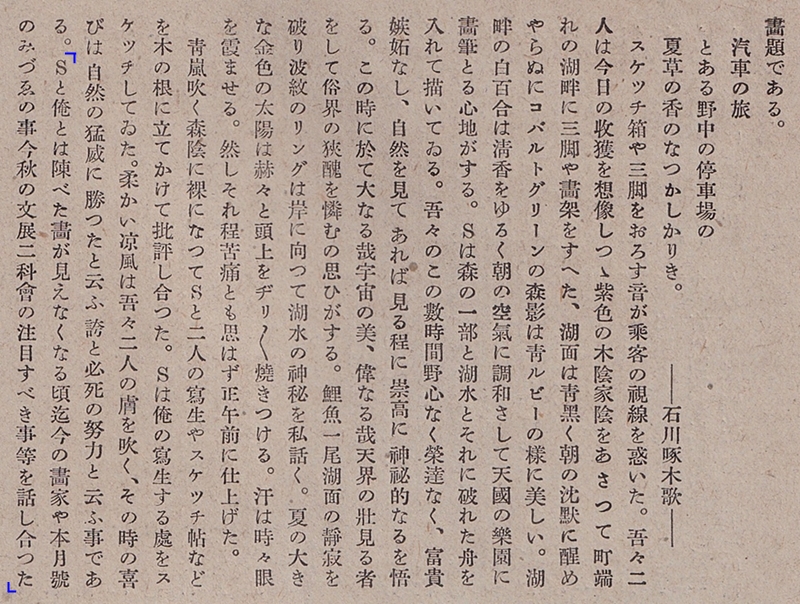 畵題である。
汽車の旅
とある野中の停車場の
夏草の香のなつかしかりき。　　――石川啄木歌――
スケッチ箱や三脚をおろす音が乘客の視線を惑いた。吾々二
人は今日の收獲を想像しつゝ紫色の木陰家陰をあさつて町端
れの湖畔に三脚や畵架をすへた、湖面は靑黑く朝の沈默に醒め
やらぬにコバルトグリーンの森影は靑ルビーの樣に美しい。湖
畔の白百合は淸香をゆるく朝の空氣に調和さして天國の樂園に
畵筆とる心地がする。Sは森の一部と湖水とそれに破れた舟を
入れて描いてゐる。吾々のこの數時間野心なく榮達なく、富貴
嫉妬なし、自然を見てあれば見る程に崇高に神祕的なるを悟
る。この時に於て大なる哉宇宙の美、偉なる哉天界の壯見る者
をして俗界の狹醜を憐むの思ひがする。鯉魚一尾湖面の靜寂を
破り波紋のリングは岸に向つて湖水の神秘を私話く。夏の大き
な金色の太陽は赫々と頭上をヂリ〳〵燒きつける。汗は時々眼
を霞ませる。然しそれ程苦痛とも思はず正午前に仕上げた。
靑嵐吹く森陰に裸になつてSと二人の寫生やスケッチ帖など
を木の根に立てかけて批評し合つた。Sは俺の寫生する處をス
ケッチしてゐた。柔かい凉風は吾々二人の膚を吹く、その時の喜
びは自然の猛威に勝つたと云ふ誇と必死の努力と云ふ事であ
る。Sと俺とは陳べた畵が見えなくなる頃迄今の畵家や本月號
のみづゑの事今秋の文展二科會の注目すべき事等を話し合つた